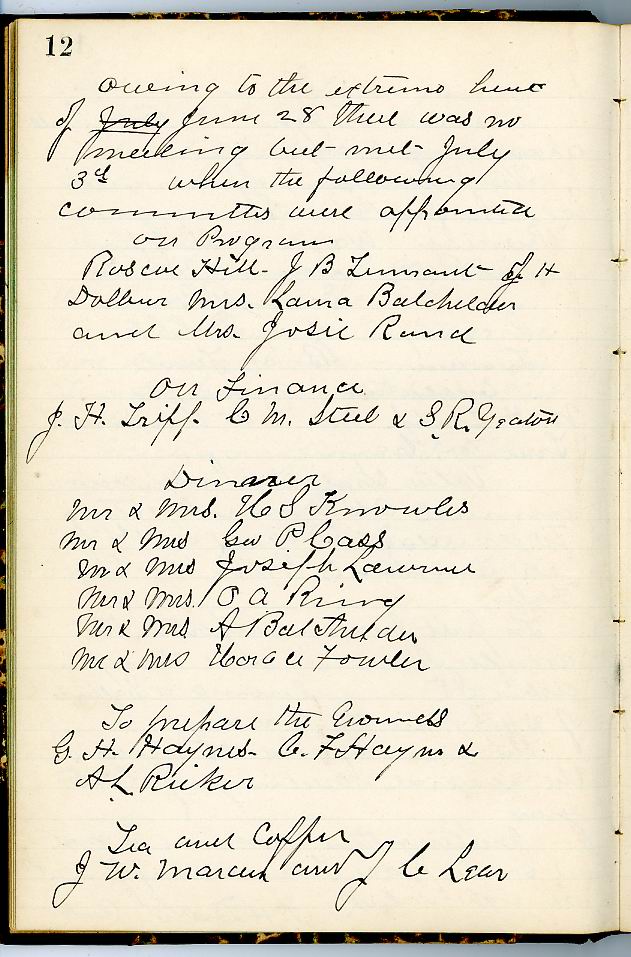 12
owing to the extreme heat
of July June 28 there was no
meeting but met July
3d when the following
committes were appointed
on Program
Roscoe Hill- J B Tennant- J H
Dolbeer Mrs. Laura Batchelder
and Mrs. Josie Rand
On Finance
J. H. Tripp. C M. Steel & S. R. Yeaton
Dinner
Mr & Mrs. H S Knowles
Mr & Mrs Geo P Cass
Mr & Mrs Joseph Lawrence
Mr & Mrs. O A Ring
Mr & Mrs A Batchelder
Mr & Mrs Horace Fowler
To prepare the Grounds
G. H. Haynes- C. F Haynes &
A L Ricker
Tea and Coffee
J W. Marden and J C Lear